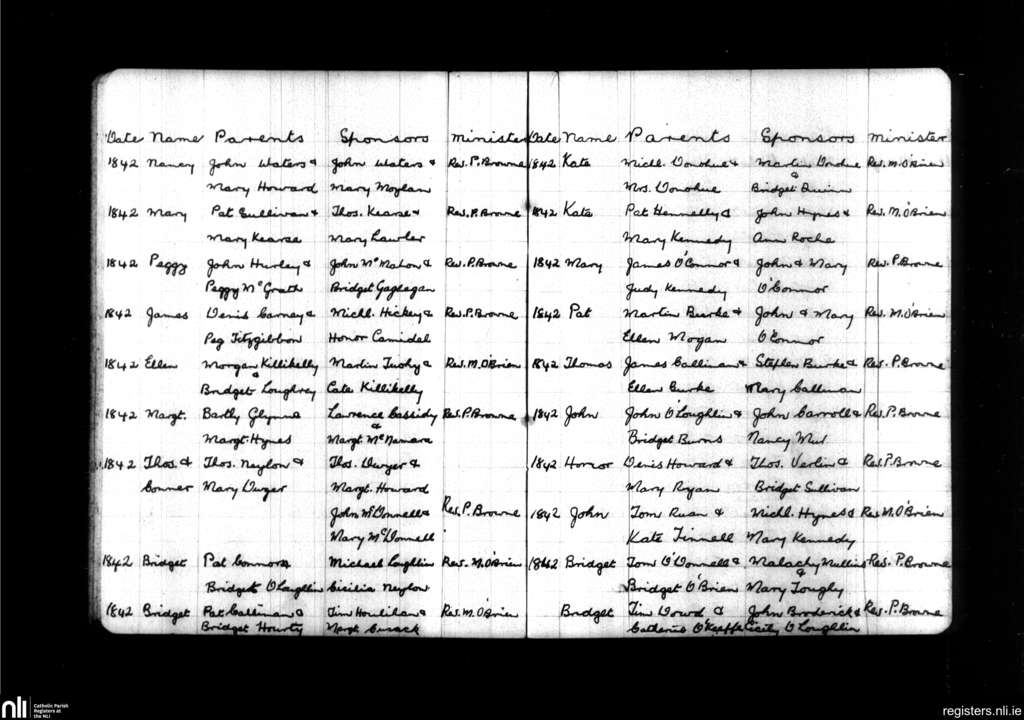 Date Name Parents Sponsors Minister
1842 Nancy John Waters & John Waters & Rev. P. Browne
Mary Howard Mary Moylan
1842 Mary Pat Sullivan & Thos. Kearse & Rev. P. Browne
Mary Kearse Mary Lawler
1842 Peggy John Hurley & John McMahon & Rev. P. Browne
Peggy McGrath Bridget Gageagan
1842 James Denis Carney & Michl. Hickey & Rev. P. Browne
Peg Fitzgibbon Honor
1842 Ellen Morgan Killikelly Martin Tuohy & Rev. M. O'Brien
&
Bridget Loughrey Cate Killikelly
1842 Margt. Bartly Glynn & Lawrence Cassidy Rev. P. Browne
&
Margt. Hynes Margt McNamara
1842 Thos. & Thos. Neylon & Thos. Dwyer &
Conner Mary Dwyer Margt. Howard
John McDonnell & Rev. P. Browne
Mary McDonnell
1842 Bridget Pat Connors Michael Loghlin Rev. M. O'Brien
&
Bridget O'Loughlin Cicilia Neylon
1842 Bridget Pat Callinan & Tim Houlihan & Rev. M. O'Brien
Bridget Hourty Margt. Cusack
Date Name Parents Sponsors Minister
1842 Kate Michl. Donohue & Martin Rev. M. O'Brien
&
Mrs. Donohue Bridget Quinn
1842 Kate Pat Hennelly & John Hynes & Rev. M. O'Brien
Mary Kennedy Ann Roche
1842 Mary James O'Connor & John & Mary Rev. P. Browne
Judy Kennedy O'Connor
1842 Pat Martin Burke & John & Mary Rev. M. O'Brien
Ellen Morgan O'Connor
1842 Thomas James Callinan & Stephen Burke & Rev. P. Browne
Ellen Burke Mary Callinan
1842 John John O'Loughlin & John Carroll & Rev. P. Browne
Bridget Burns Nancy
1842 Honor Denis Howard & Thos. & Rev. P. Browne
Mary Ryan Bridget Sullivan
1842 John Tom Ruan & Michl. Hynes & Rev. M. O'Brien
Kate Finnell Mary Kennedy
1842 Bridget Tom O'Donnell & Malachy Mullins Rev. P. Browne
&
Bridget O'Brien Mary Toughy
Bridget Tim Dowd & John Broderick & Rev. P. Browne
Catherine O'Keeffe Cicily O'Loughlin
nli
Catholic Parish
Registers at
the NLI
registers.nli.ie